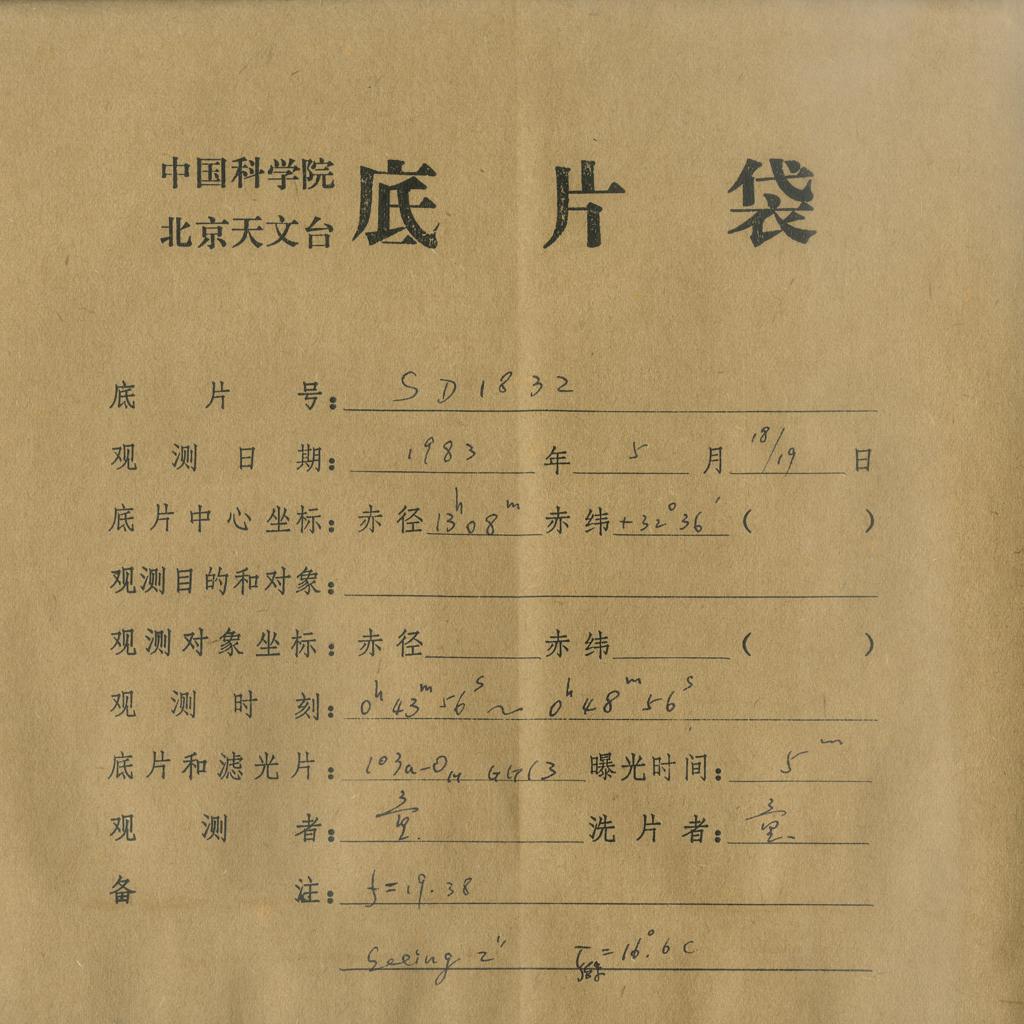 中国科学院
北京天文台
底片袋
底片号: SD1832
观测日期: 1983 年 5 月 18/19 日
底片中心坐标: 赤径 13h08m 赤纬 +32°36′ ( )
观测目的和对象:
观测对象坐标: 赤径 赤纬 ( )
观测时刻: 0h43m56s ~ 0h48m56s
底片和滤光片: 103a-O GG13 曝光时间: 5m
观测者: 洗片者:
备注: f=19.38
Seeing 2″ T =16°.6C